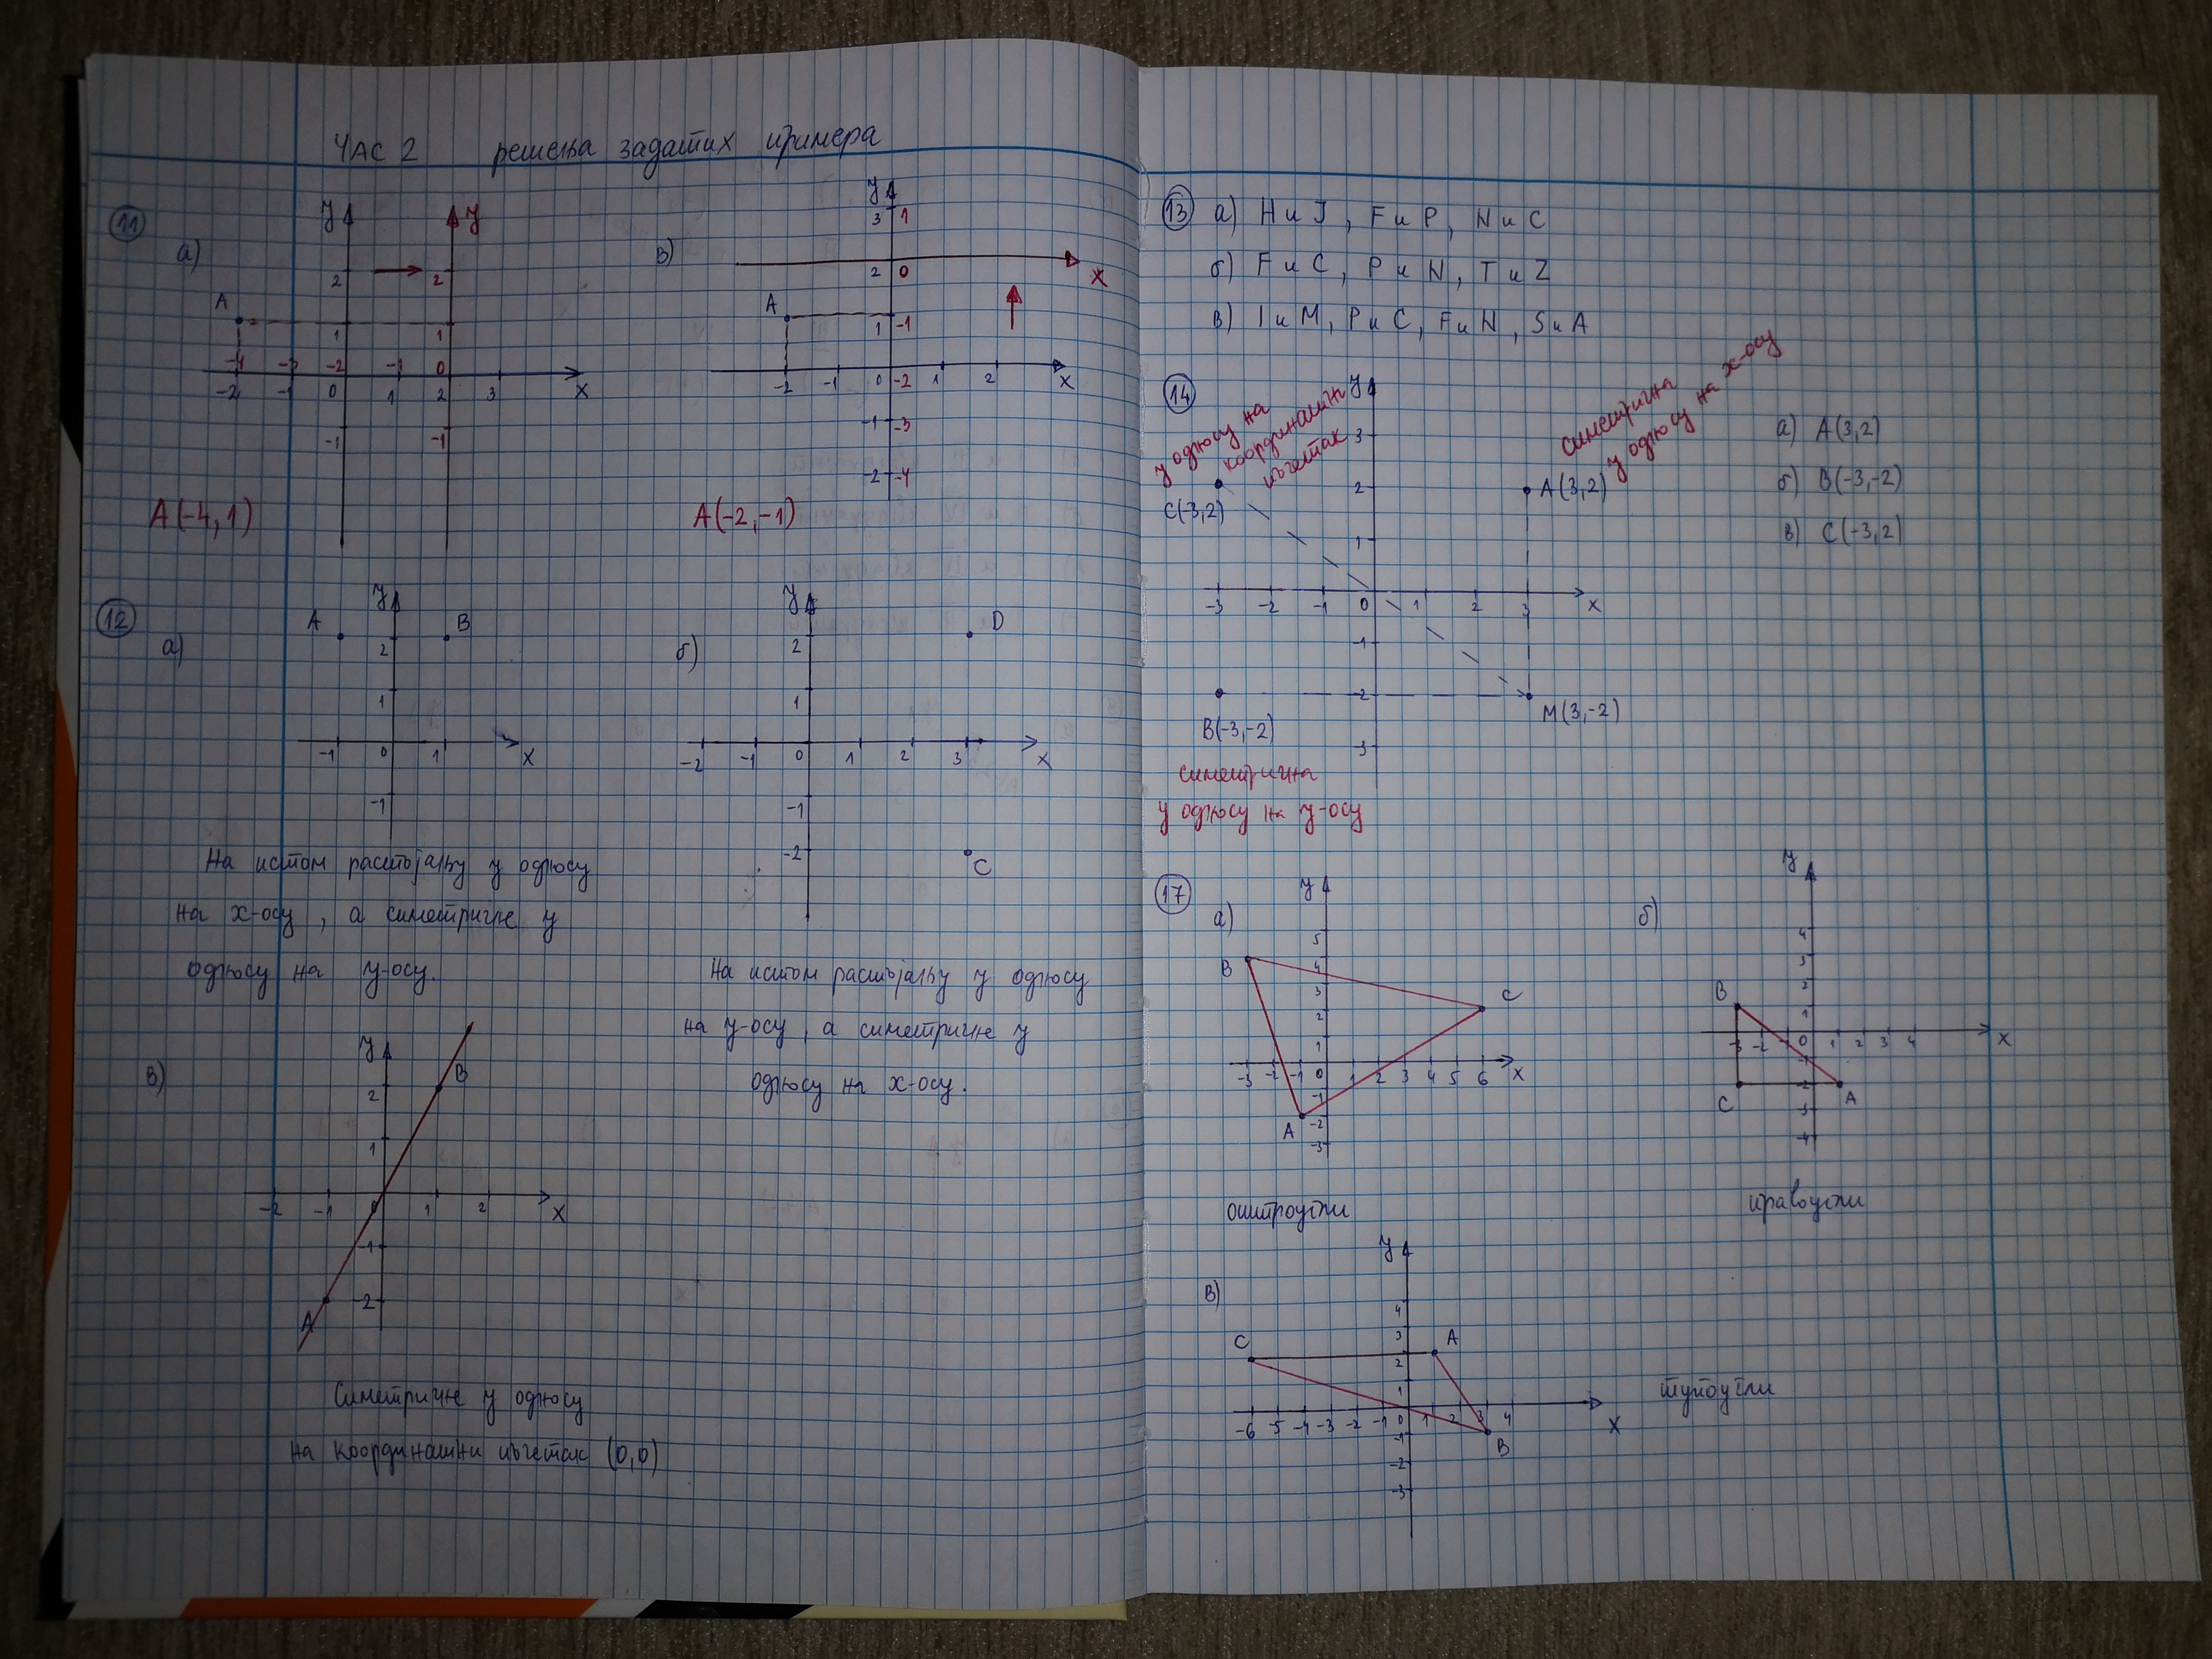 ЧАС 2 решења задатих примера
11
а)
y
y
2
2
A
1
1
-4 -3 -2 -1 0
-2 -1 0 1 2 3 x
-1
-1
A(-4,1)
в)
y
3 1
2 0
x
A
1 -1
-2 -1 0 -2 1 2 x
-1 -3
-2 -4
A(-2,-1)
12
а)
y
A B
2
1
-1 0 1 x
-1
На истом растојању у односу
на x-осу, а симетричне у
односу на y-осу.
б)
y
D
2
1
-2 -1 0 1 2 3 x
-1
-2
C
На истом растојању у односу
на y-осу, а симетричне у
односу на x-осу.
в)
y
B
2
1
-2 -1 0 1 2 x
-1
-2
A
Симетричне у односу
на координатни почетак (0,0)
13 а) H и J, F и P, N и C
б) F и C, P и N, T и Z
в) I и M, P и C, F и N, S и A
14
y
у односу на
координатни
почетак
симетрична
у односу на x-осу
3
2
A(3,2)
C(-3,2)
1
-3 -2 -1 0 1 2 3 x
-1
-2
B(-3,-2)
M(3,-2)
-3
симетрична
у односу на y-осу
а) A(3,2)
б) B(-3,-2)
в) C(-3,2)
17
а)
y
5
B
4
3
C
2
1
-3 -2 -1 0 1 2 3 4 5 6 x
-1
A
-2
-3
оштроугли
б)
y
4
3
2
B
1
-3 -2 0 1 2 3 4 x
-1
-2
C A
-3
-4
правоугли
в)
y
4
3
C A
2
1
-6 -5 -4 -3 -2 -1 0 1 2 3 4 x
-1
B
-2
-3
тупоугли